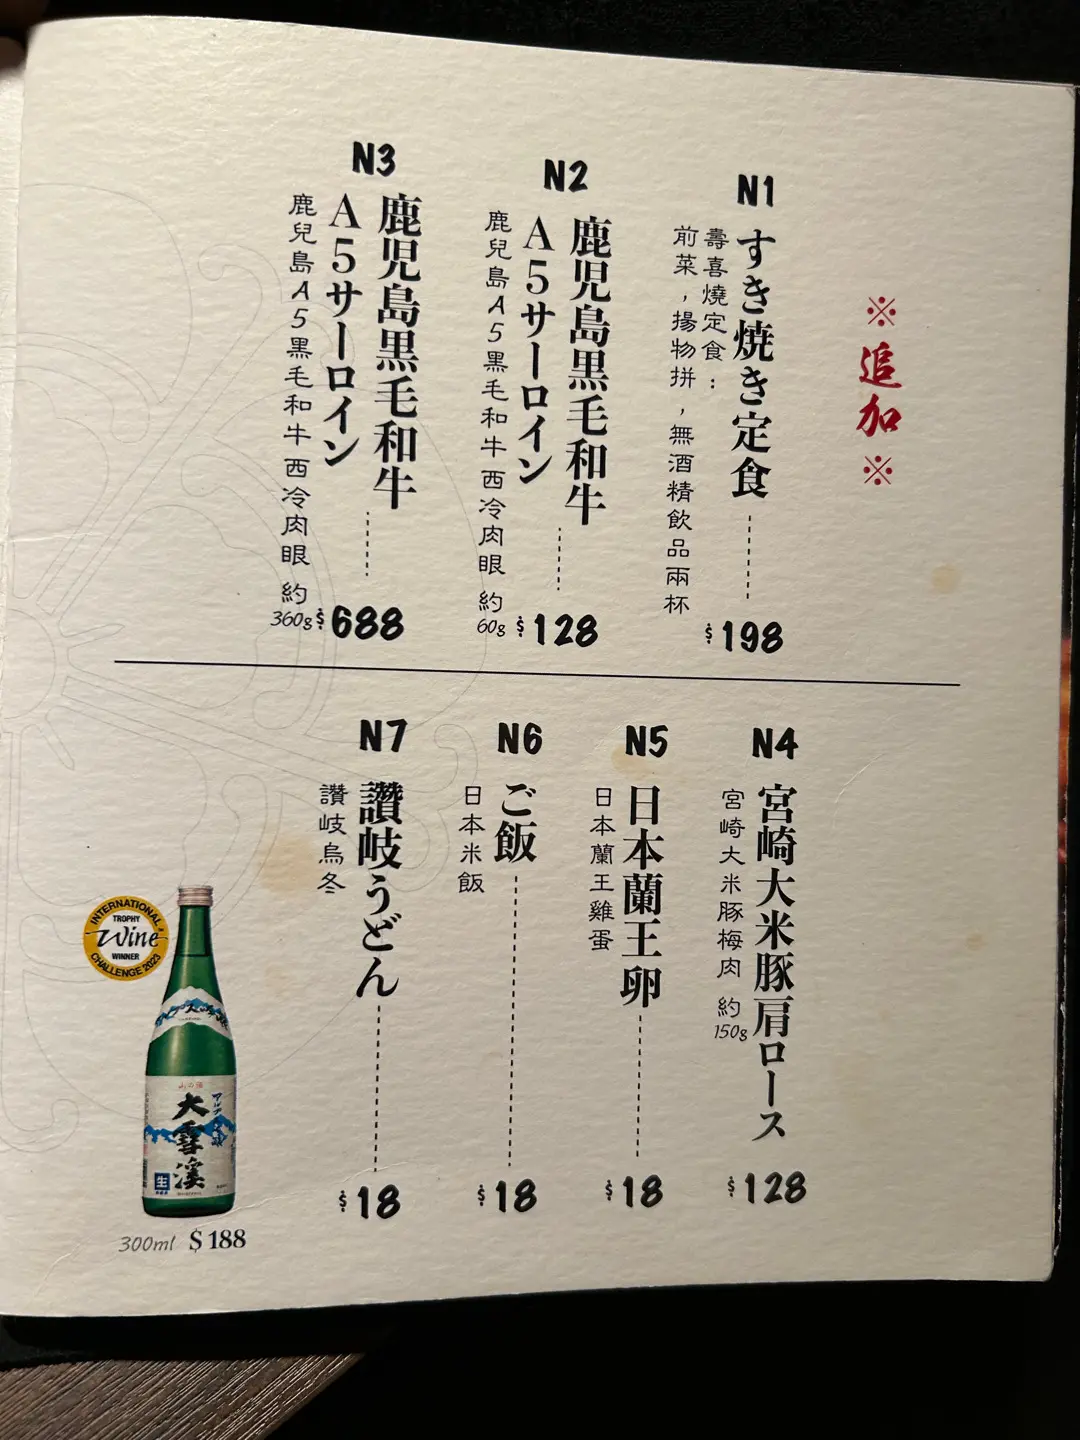 ※追加※
N1
すき焼き定食
壽喜燒定食：
前菜，揚物拼，無酒精飲品兩杯
$198
N2
鹿児島黒毛和牛
A5サーロイン
鹿兒島A5黑毛和牛西冷肉眼 約60g
$128
N3
鹿児島黒毛和牛
A5サーロイン
鹿兒島A5黑毛和牛西冷肉眼 約360g
$688
N4
宮崎大米豚肩ロース
宮崎大米豚梅肉 約150g
$128
N5
日本蘭王卵
日本蘭王雞蛋
$18
N6
ご飯
日本米飯
$18
N7
讃岐うどん
讚岐烏冬
$18
INTERNATIONAL
TROPHY
Wine
WINNER
CHALLENGE 2023
山の酒
大雪渓
生
300ml $188